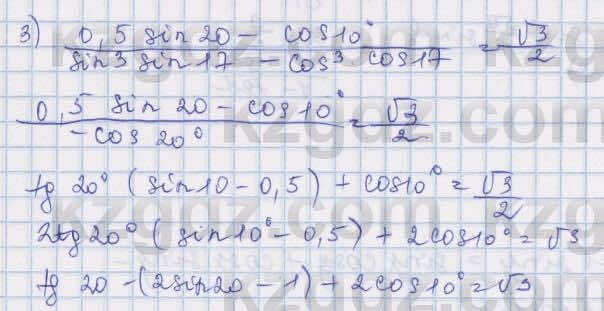 3) 0,5 sin 20 - cos10° / sin3 sin17 - cos3 cos17 = √3/2
0,5 sin 20 - cos10° / -cos 20° = √3/2
tg 20° (sin10 - 0,5) + cos10° = √3/2
2tg20° (sin10° - 0,5) + 2cos10° = √3
tg 20 - (2sin20 - 1) + 2cos10° = √3
kzguz.com